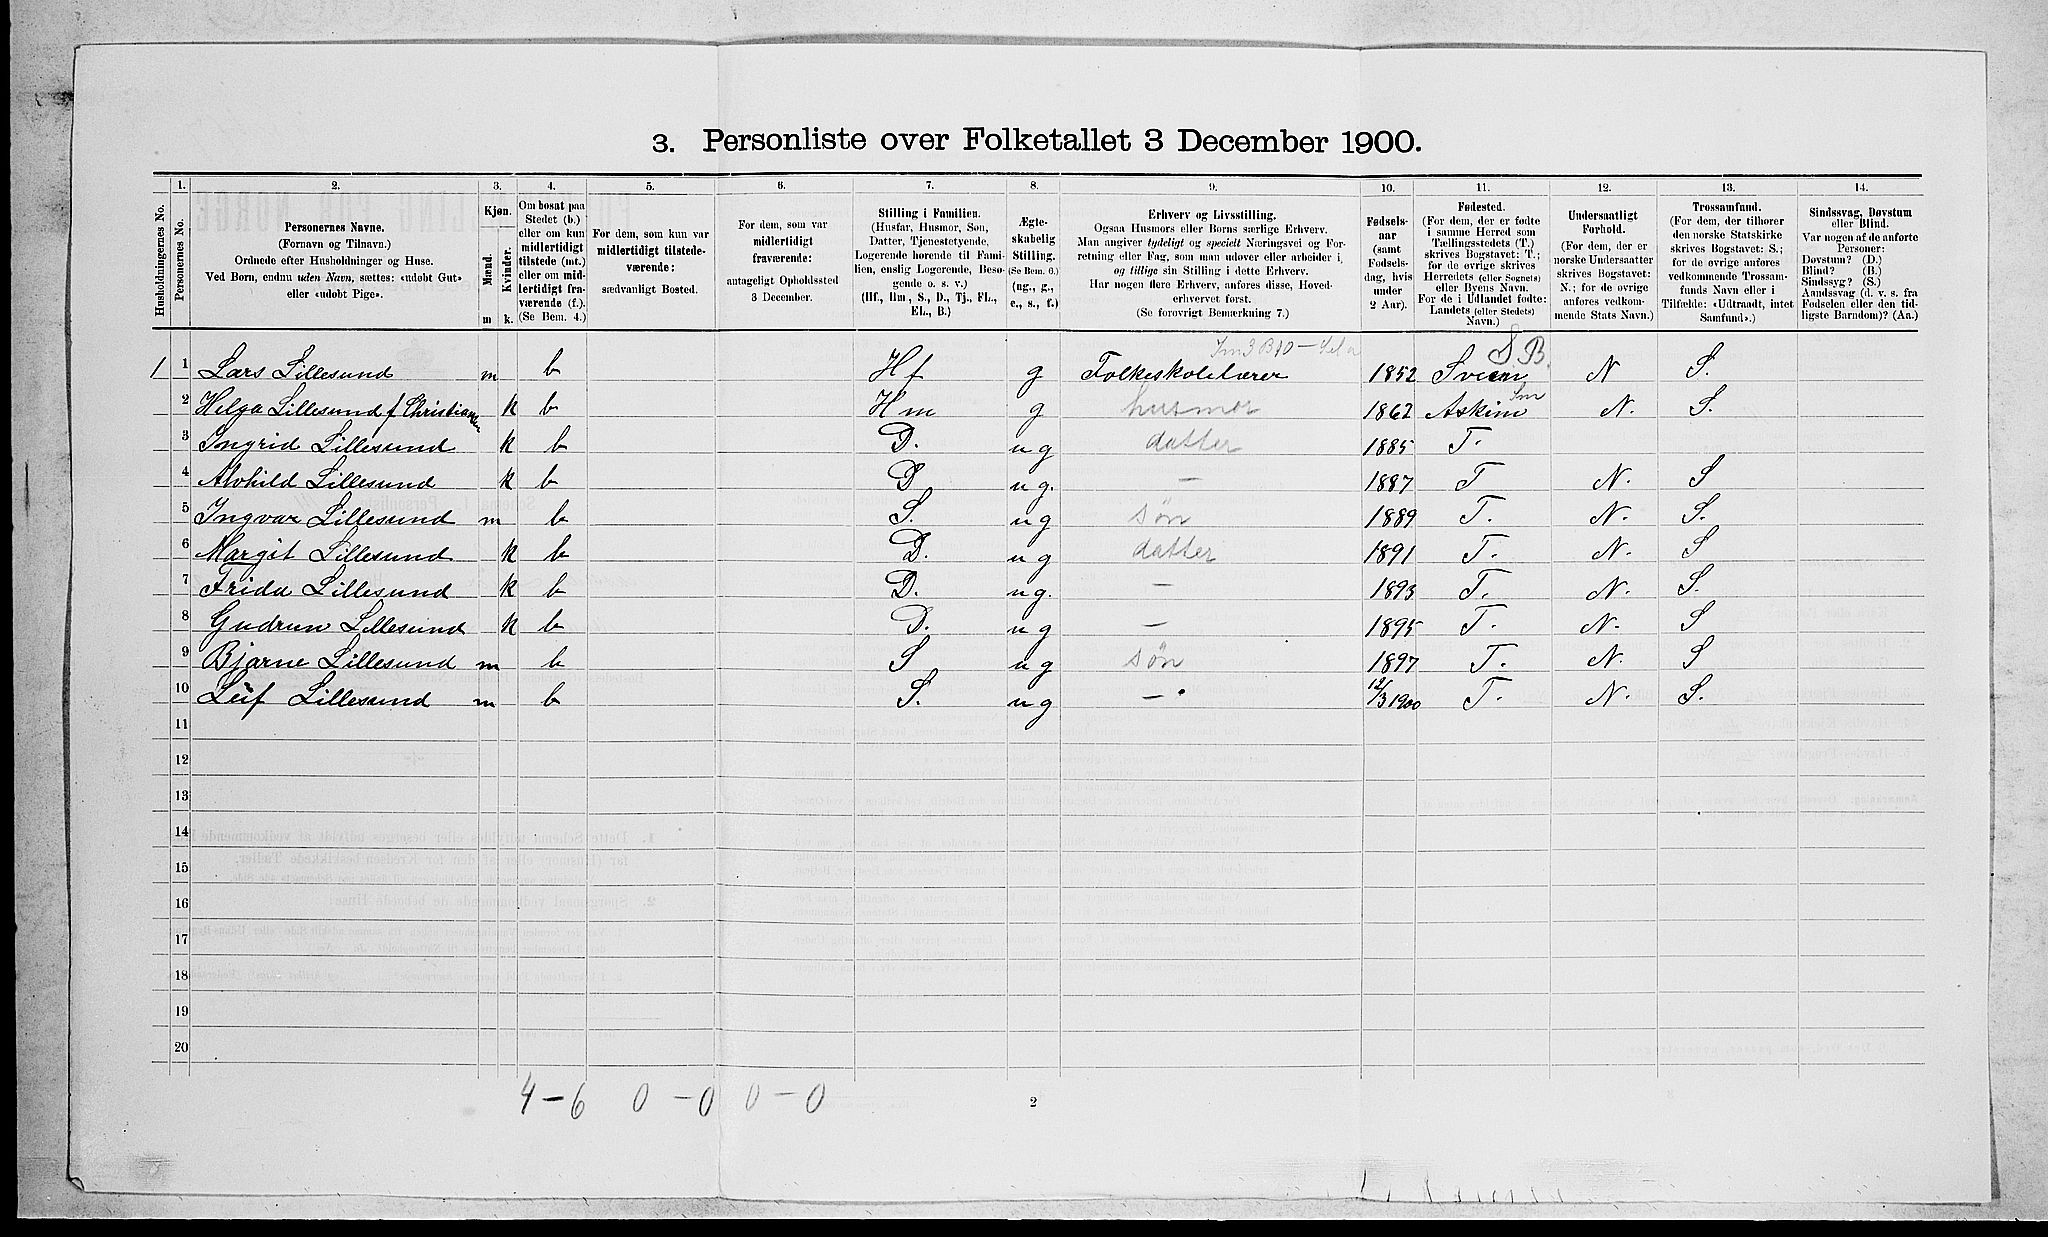 3. Personliste over Folketallet 3 December 1900.
1. 2. 3. 4. 5. 6. 7. 8. 9. 10. 11. 12. 13. 14.
Husholdningernes No.
Personernes No.
Personernes Navne.
(Fornavn og Tilnavn.)
Ordnede efter Husholdninger og Huse.
Ved Børn, endnu uden Navn, sættes: «udøbt Gut»
eller «udøbt Pige».
Kjøn.
Mænd.
Kvinder.
m k.
Om bosat paa
Stedet (b.)
eller om kun
midlertidigt
tilstede (mt.)
eller om mid-
lertidigt fra-
værende (f.)
(Se Bem. 4.)
For dem, som kun var
midlertidigt tilstede-
værende:
sædvanligt Bosted.
For dem, som var
midlertidigt
fraværende:
antageligt Opholdssted
3 December.
Stilling i Familien.
(Husfar, Husmor, Søn,
Datter, Tjenestetyende,
Logerende hørende til Fami-
lien, enslig Logerende, Besø-
gende o. s. v.)
(Hf., Hm., S., D., Tj., FL.,
EL., B.)
Ægte-
skabelig
Stilling.
(Se Bem. 6.)
(ug., g.,
e., s., f.)
Erhverv og Livsstilling.
Ogsaa Husmors eller Børns særlige Erhverv.
Man angiver tydeligt og specielt Næringsvei og For-
retning eller Fag, som man udøver eller arbeider i,
og tillige sin Stilling i dette Erhverv.
Har nogen flere Erhverv, anføres disse, Hoved-
erhvervet først.
(Se forøvrigt Bemærkning 7.)
Fødsels-
aar
(samt
Fødsels-
dag, hvis
under
2 Aar).
Fødested.
(For dem, der er fødte
i samme Herred som
Tællingsstedets (T.)
skrives Bogstavet: T.;
for de øvrige skrives
Herredets (eller Sognets)
eller Byens Navn.
For de i Udlandet fødte:
Landets (eller Stedets)
Navn.)
Undersaatligt
Forhold.
(For dem, der er
norske Undersaatter
skrives Bogstavet:
N.; for de øvrige
anføres vedkom-
mende Stats Navn.)
Trossamfund.
(For dem, der tilhører
den norske Statskirke
skrives Bogstavet: S.;
for de øvrige anføres
vedkommende Trossam-
funds Navn eller i
Tilfælde: «Udtraadt, intet
Samfund».)
Sindssvag, Døvstum
eller Blind.
Var nogen af de anførte
Personer:
Døvstum? (D.)
Blind? (B.)
Sindssyg? (S.)
Aandssvag (d. v. s. fra
Fødselen eller den tid-
ligste Barndom)? (Aa.)
S B.
1 1 Lars Lillesund m b Hf g Folkeskolelærer 1852 Sveen N S.
2 Helga Lillesund f Christiansen k b Hm g husmor 1862 Askim N. S.
3 Ingrid Lillesund k b D. ug datter 1885 T.
4 Alvhild Lillesund k b D ug. — 1887 T N. S
5 Ingvar Lillesund m b S. ug søn 1889 T. N. S.
6 Margit Lillesund k b D. ug datter 1891 T. N. S
7 Frida Lillesund k b D. ug. — 1893 T. N. S.
8 Gudrun Lillesund k b D. ug — 1895 T. N. S
9 Bjarne Lillesund m b S ug søn 1897 T. N. S
10 Leif Lillesund m b S. ug — 12/3 1900 T. N. S.
11
12
13
14
15
16
17
18
19
20
4–6 0–0 0–0
2